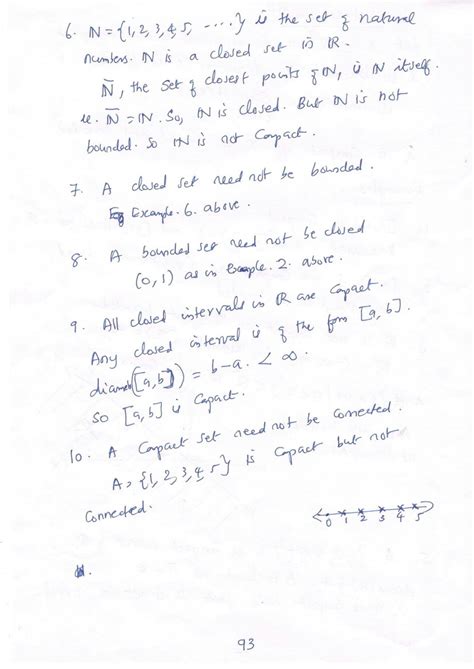 6. ℕ = {1, 2, 3, 4, 5, ....} is the set of natural
numbers. ℕ is a closed set in ℝ.
ℕ̄, the set of closest points of ℕ, is ℕ itself.
ie. ℕ̄ = ℕ. So, ℕ is closed. But ℕ is not
bounded. So ℕ is not Compact.
7. A closed set need not be bounded.
Eg Example. 6. above.
8. A bounded set need not be closed
(0, 1) as in Example. 2. above.
9. All closed intervals in ℝ are Compact.
Any closed interval is of the form [a, b].
diam([a, b]) = b-a. < ∞.
So [a, b] is Compact.
10. A Compact set need not be connected.
A = {1, 2, 3, 4, 5} is Compact but not
Connected.
0 1 2 3 4 5
93